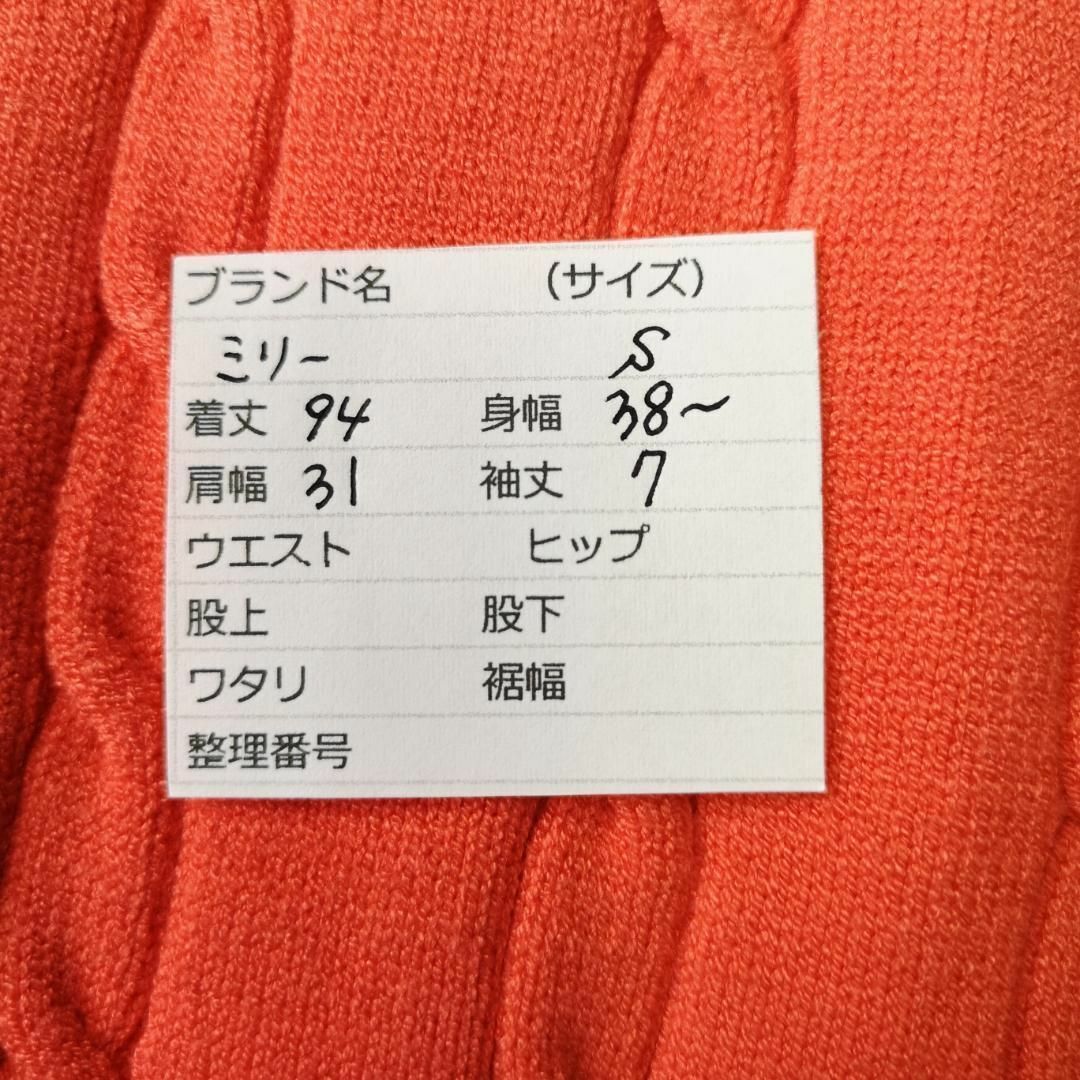 ブランド名 (サイズ)
ミリー S
着丈 94 身幅 38~
肩幅 31 袖丈 7
ウエスト ヒップ
股上 股下
ワタリ 裾幅
整理番号